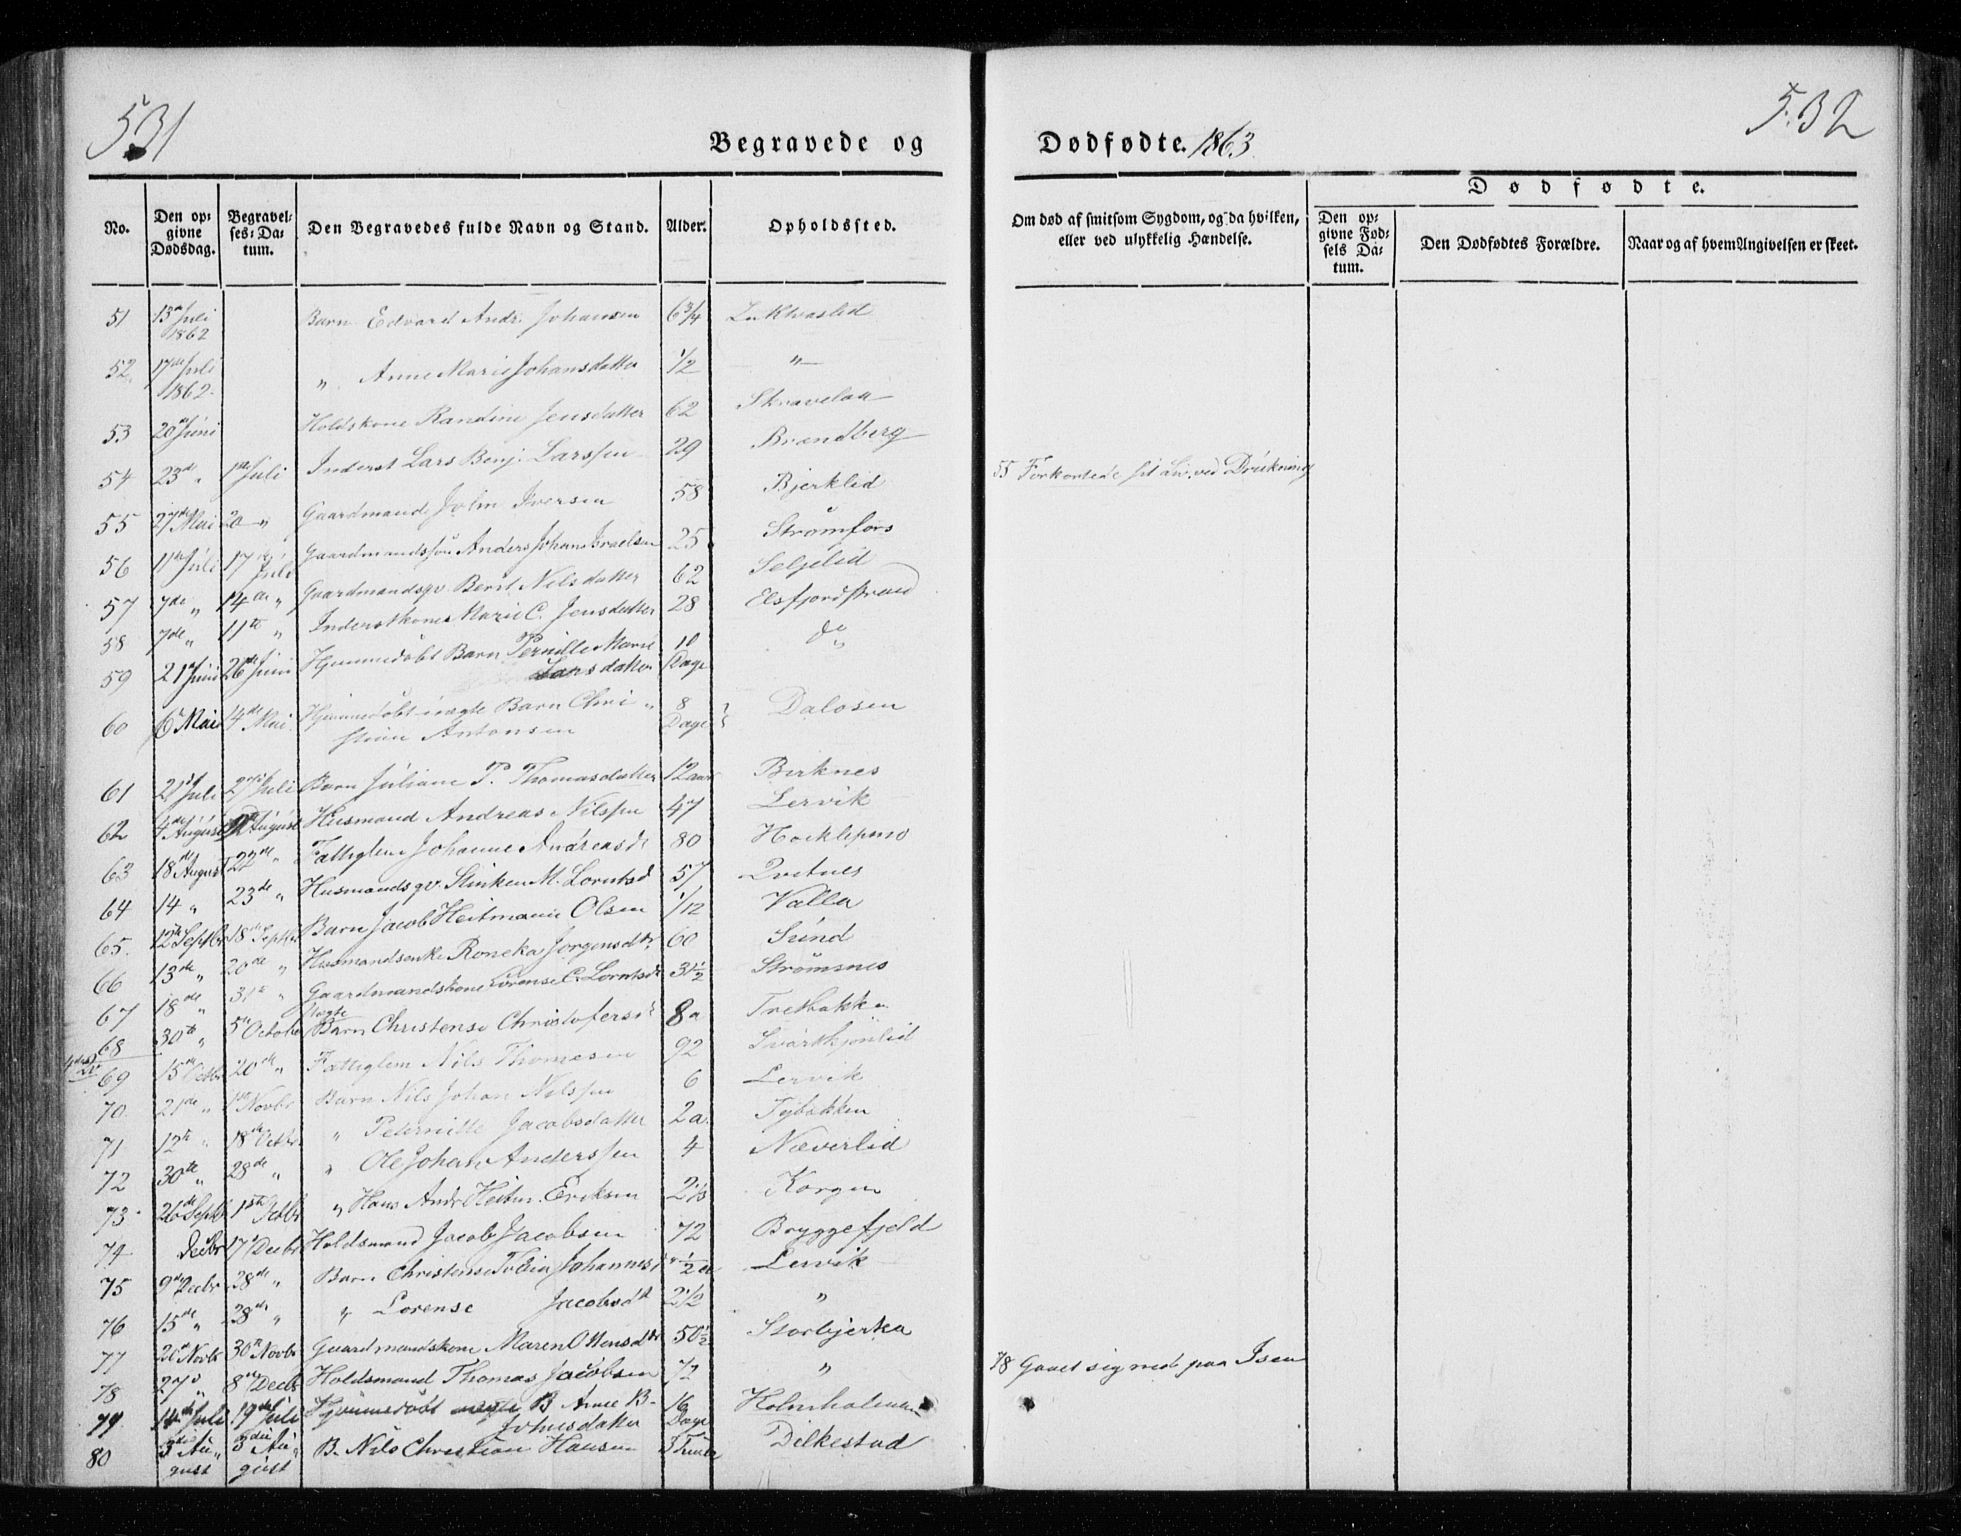 531
Begravede og
No.
Den opgivne Dødsdag.
Begravelses-Datum.
Den Begravedes fulde Navn og Stand.
Alder.
Opholdssted.
51 13de Juli 1862 Barn Edvard Andr. Johansen 6 3/4
52 17de Juli 1862. " Anne Marie Johansdatter 1/2 "
53 20de Juni Holdskone Randine Jensdatter 62 Skravelaa
54 23de " 1ste Juli Inderst Lars Benj. Larssen 29 Brændberg
55 27de Mai 20 " Gaardmand John Iversen 58 Bjerklid
56 11te Juli 17de Juli Gaardmandssøn Anders Johan Israelsen 25 Strømfors
57 7de " 14de " Gaardmandsqv. Berit Nilsdatter 62 Seljelid
58 7de " 11te " Inderstkone Marie C. Jensdatter 28 Elsfjordstrand
59 21de Juni 26de Juni Hjemmedøbt Barn Pernille Marie Larsdatter 10 Dage do "
60 6 Mai 14de Mai Hjemmedøbt uægte Barn Chri-stian Antonsen 8 Dage Dalosen
61 21de Juli 27de Juli Barn Juliane P. Thomasdatter 12 aar Birknes
62 4de August August Husmand Andreas Nilssen 47 Lervik
63 18de August 22de " Fattiglem Johanne Andreasdr 80
64 14 " 23de " Husmandsqv. Stinken M. Lorntsd 57 Qvitnes
65. 12te Septbr 18de Septbr Barn Jacob Heitmann Olsen 1/12 Valla
66 13de " 20de " Husmandsenke Roneka Jørgensdtr. 60 Sund
67 18de " 31te " Gaardmandskone Lorense C. Lorntsdr 31 1/2 Strømsnes
68 30te " 5te October Uægte Barn Christense Christofersdr 8 a Tretbakken
69 15de Octbr 20de " Fattiglem Nils Thomesen 92 Svartkjønlid
70. 21de " 1ste Novbr Barn Nils Johan Nilssen 6 Lervik
71 12te " 18de Octbr " Peternille Jacobsdatter 2 a. Tybakken
72 30te " 28de " " Ole Johan Anderssen 4 Næverlid
73 26de Septbr 1ste Octbr " Hans Andr Heitm. Eriksen 2 1/3 Korgen
74 Decbr 17de Decbr Holdsmand Jacob Jacobsen 72 Bryggefjeld
75 9de Decbr 28de " Barn Christense Johannesdr 1/2 a Lervik
76 15de " 28de " " Lorense Jacobsdtr 2 1/2 "
77 20de Novbr 30te Novbr Gaardmandskone Maren Ottensdtr 50 1/2 Storbjerka
78 27de " 8de Decbr Holdsmand Thomas Jacobsen 72 "
79 14de Juli 19de Juli Hjemmedøbt uægte B Anne B- Johnsdatter 16 Dage Holmholmen
80 3die August 3die August B. Nils Christian Hansen Dilkestad
532
Dødfødte. 1863.
Om død af smitsom Sygdom, og da hvilken,
eller ved ulykkelig Hændelse.
Dødfødte.
Den opgivne Fødsels Datum.
Den Dødfødtes Forældre.
Naar og af hvem Angivelsen er skeet.
55 Forkortede sit Liv ved Drukning
78 Gaaet sig ned paa Isen